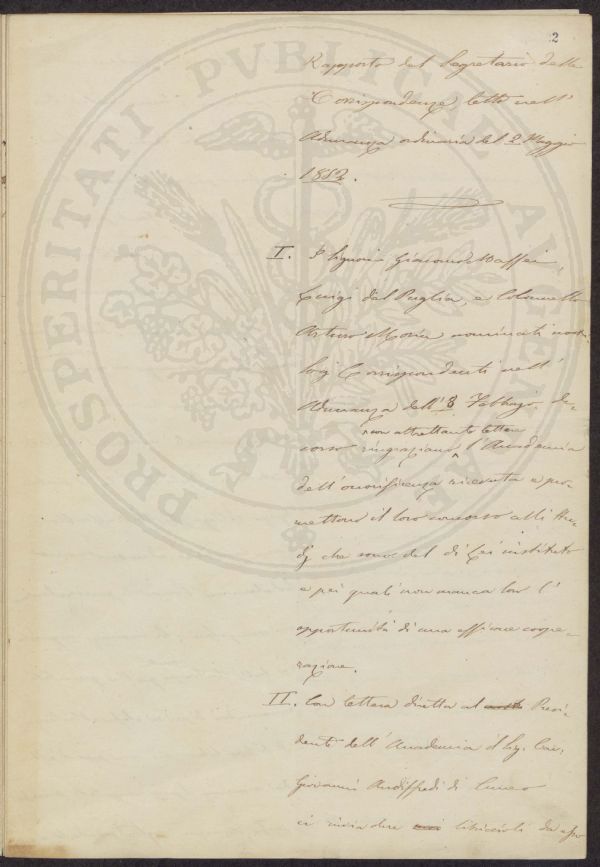 2
Rapporto del Segretario delle
Corrispondenze, letto nell'
Adunanza ordinaria del 2 Maggio
1852.
I. I Signori Giacomo Maffei,
Luigi del Puglia, e Colonnello
Arturo nominati nostri
Corrispondenti nell'
Adunanza dell' 8 Febbrajo de-
con altrettante lettere
corso ringraziano l'Accademia
dell'onorificenza ricevuta e pro-
mettono il loro concorso alli stu-
dj che sono del di Lei instituto
e pei quali non manca loro l'
opportunità di una efficace coope-
razione.
II. Con lettera diretta al Presi-
dente dell'Accademia il Sig. Cav.
Giovanni Audiffredi di Cuneo
ci invia due libriccioli da esso
PROSPERITATI PVBLICAE AVGENDAE